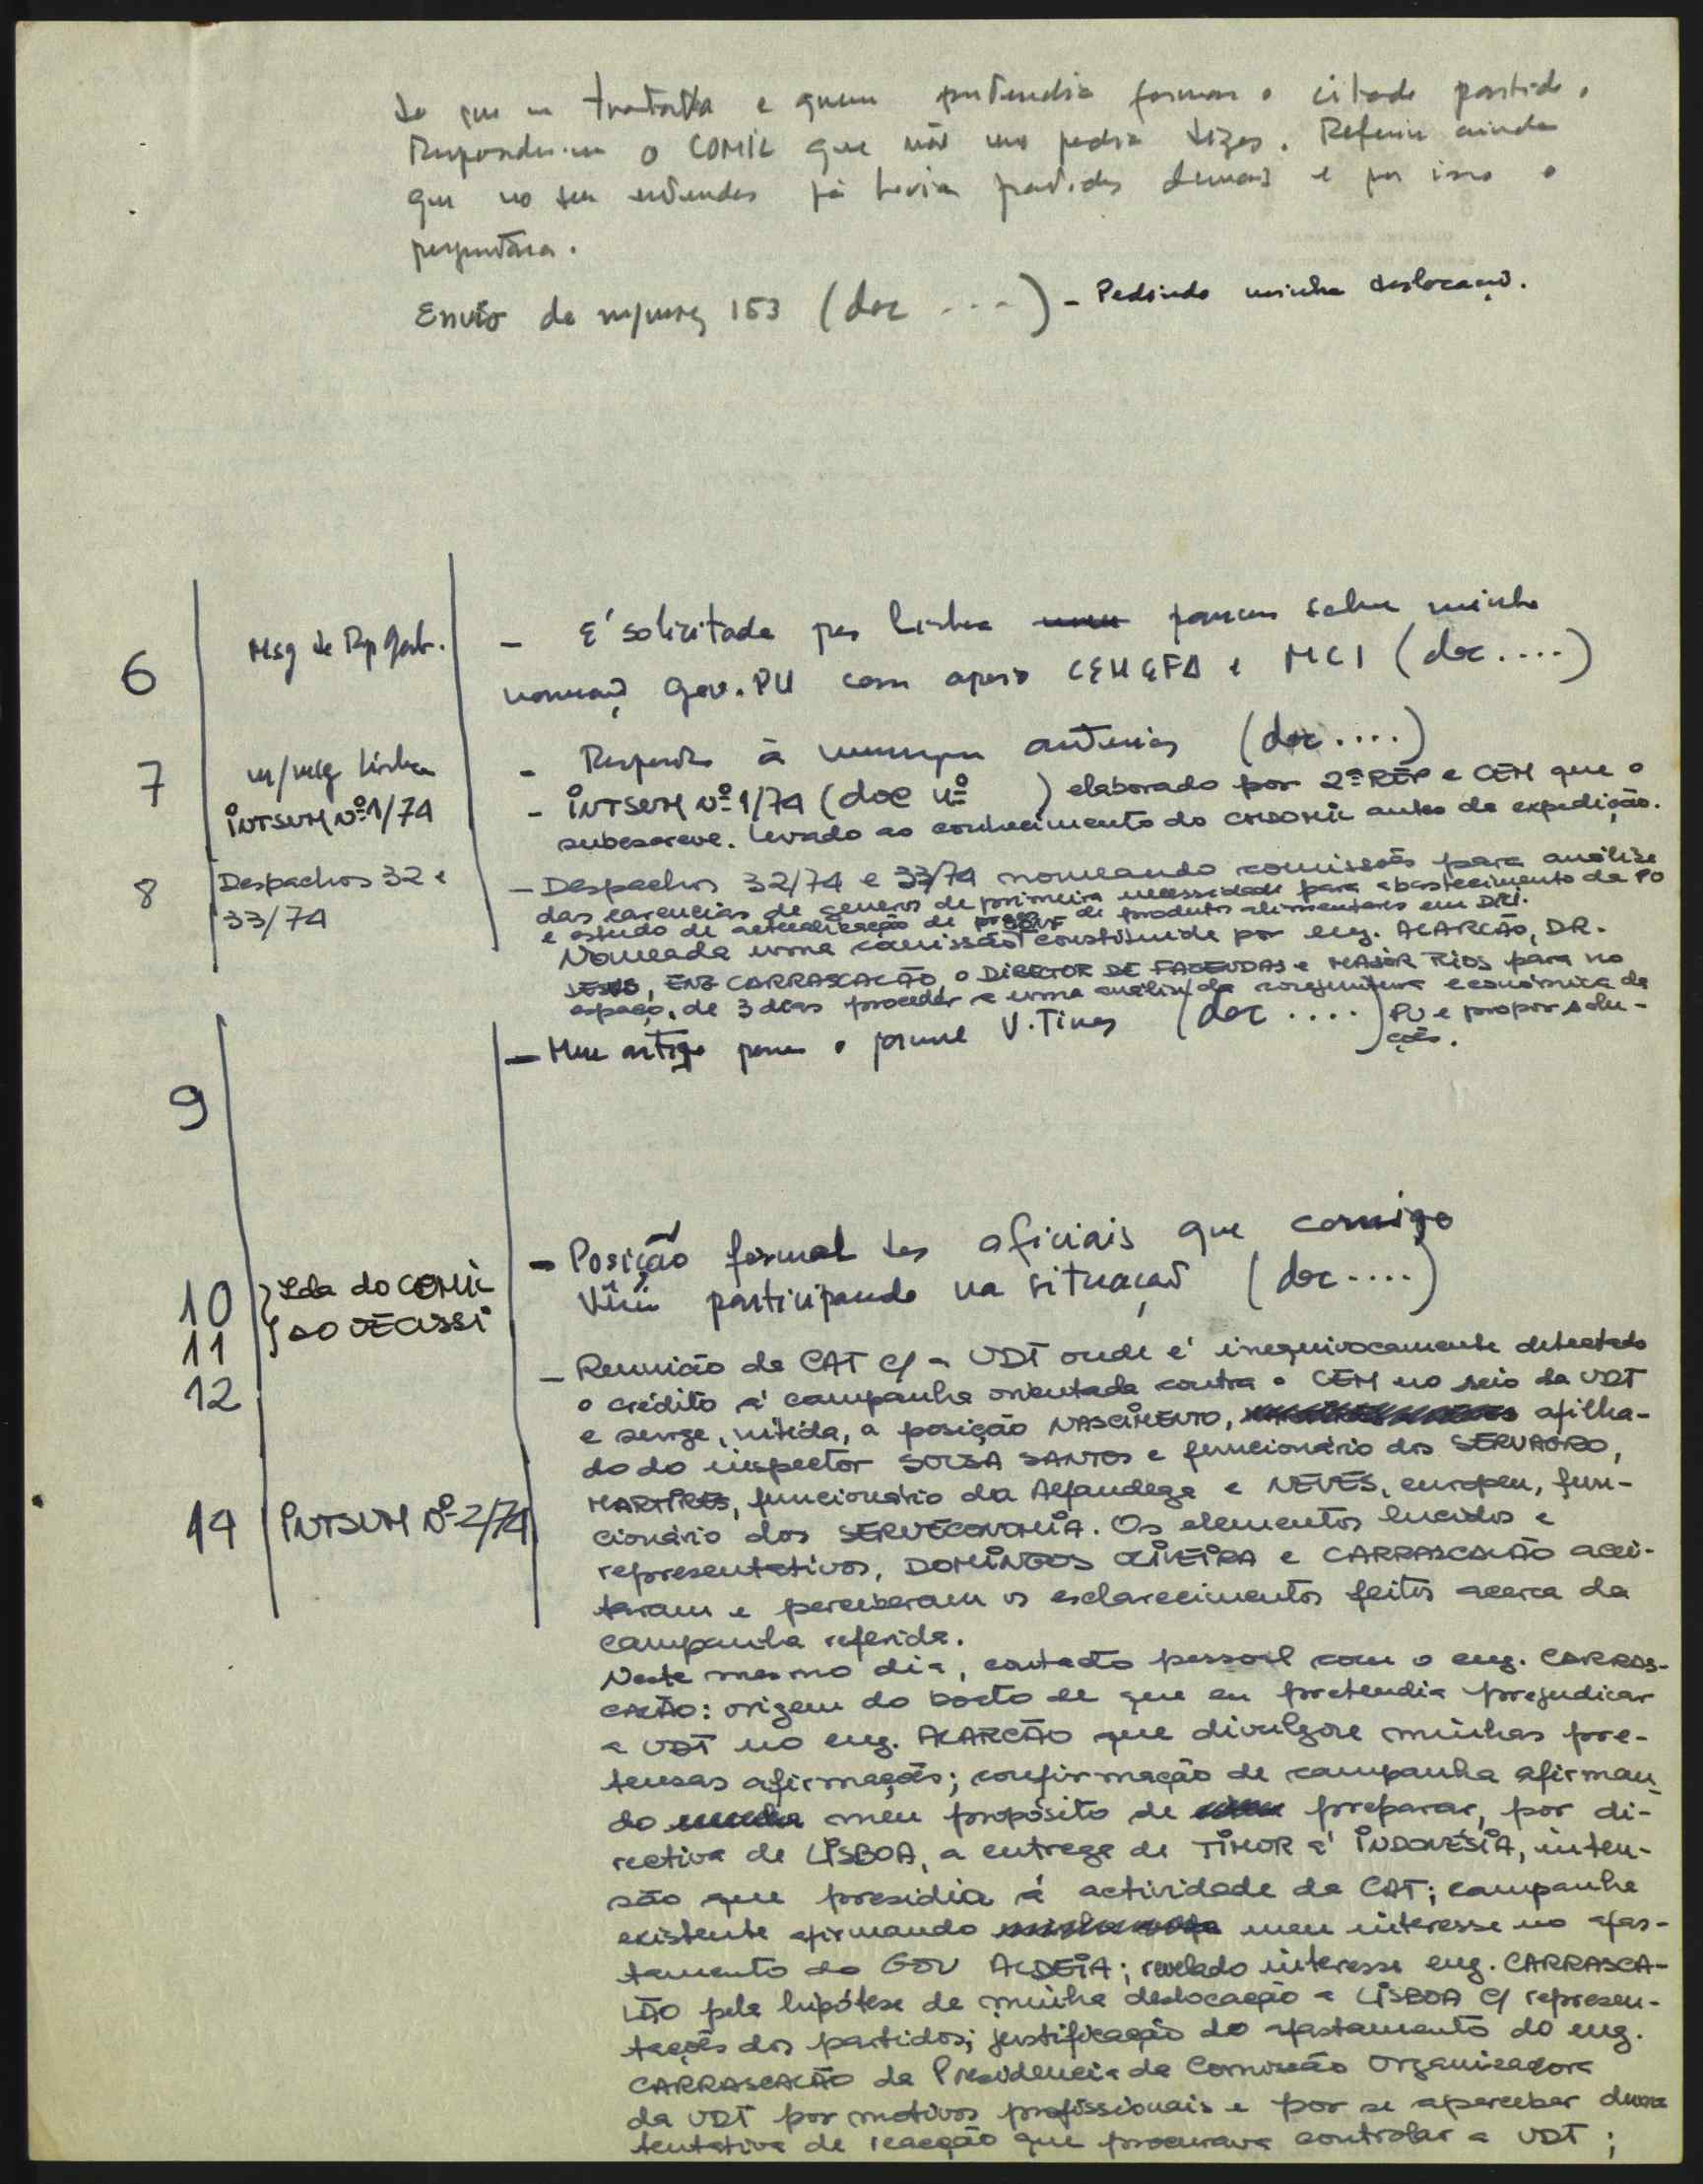 de que se tratava e quem pretendia formar o citado partido.
Respondeu-me o COMIL que não mo podia dizer. Referiu ainda
que no seu entender já havia partidos demais e por isso o
perguntara.
Envio da m/msg 153 (doc ...) - Pedindo minha deslocação.
6
Msg de Rep Gab.
- É solicitada por Lisboa parecer sobre minha
nomeaç gov. PU com apoio CEMGFA e MCI (doc ....)
7
m/msg Lisboa
INTSUM Nº 1/74
- Resposta à mensagem anterior (doc ....)
- INTSUM Nº 1/74 (doc nº ) elaborado por 2ª REP e CEM que o
subescreve. Levado ao conhecimento do antes da expedição.
8
Despachos 32 e
33/74
- Despachos 32/74 e 33/74 nomeando comissões para análise
das carencias de generos de primeira necessidade para abastecimento da PU
e estudo de actualização de preços de produtos alimentares em DILI.
Nomeada uma comissão constituida por eng. ALARCÃO, DR.
ENG CARRASCALÃO, o DIRECTOR DE FAZENDAS e MAJOR RIOS para no
espaço de 3 dias proceder a uma análise da conjuntura económica da
PU e propor solu-
ções.
- Meu artigo para o jornal V. Timor (doc ....)
9
- Posição formal dos oficiais que comigo
vêm participando na situação (doc ....)
10
11
12
Ida do COMIL
AO OECUSSI
- Reunião da CAT c/ a UDT onde é inequivocamente detectado
o crédito à campanha orientada contra o CEM no seio da UDT
e surge, nitida, a posição NASCIMENTO, afilha-
do do inspector SOUSA SANTOS e funcionário dos SERVAGRO,
MARTIRES, funcionário da Alfandega e NEVES, europeu, fun-
cionário dos SERVECONOMIA. Os elementos lucidos e
representativos, DOMINGOS OLIVEIRA e CARRASCALÃO acei-
taram e perceberam os esclarecimentos feitos acerca da
campanha referida.
14
INTSUM Nº 2/74
Neste mesmo dia, contacto pessoal com o eng. CARRAS-
CALÃO: origem do boato de que eu pretendia prejudicar
a UDT no eng. ALARCÃO que divulgou minhas pre-
tensas afirmações; confirmação de campanha afirman-
do meu propósito de preparar, por di-
rectiva de LISBOA, a entrega de TIMOR à INDONÉSIA, inten-
são que presidia à actividade da CAT; campanha
existente afirmando meu interesse no afas-
tamento do GOV ALDEIA; revelado interesse eng. CARRASCA-
LÃO pela hipótese de minha deslocação a LISBOA c/ represen-
tações dos partidos; justificação do afastamento do eng.
CARRASCALÃO da Presidencia da Comissão Organizadora
da UDT por motivos profissionais e por se aperceber duma
tentativa de reacção que procurava controlar a UDT;